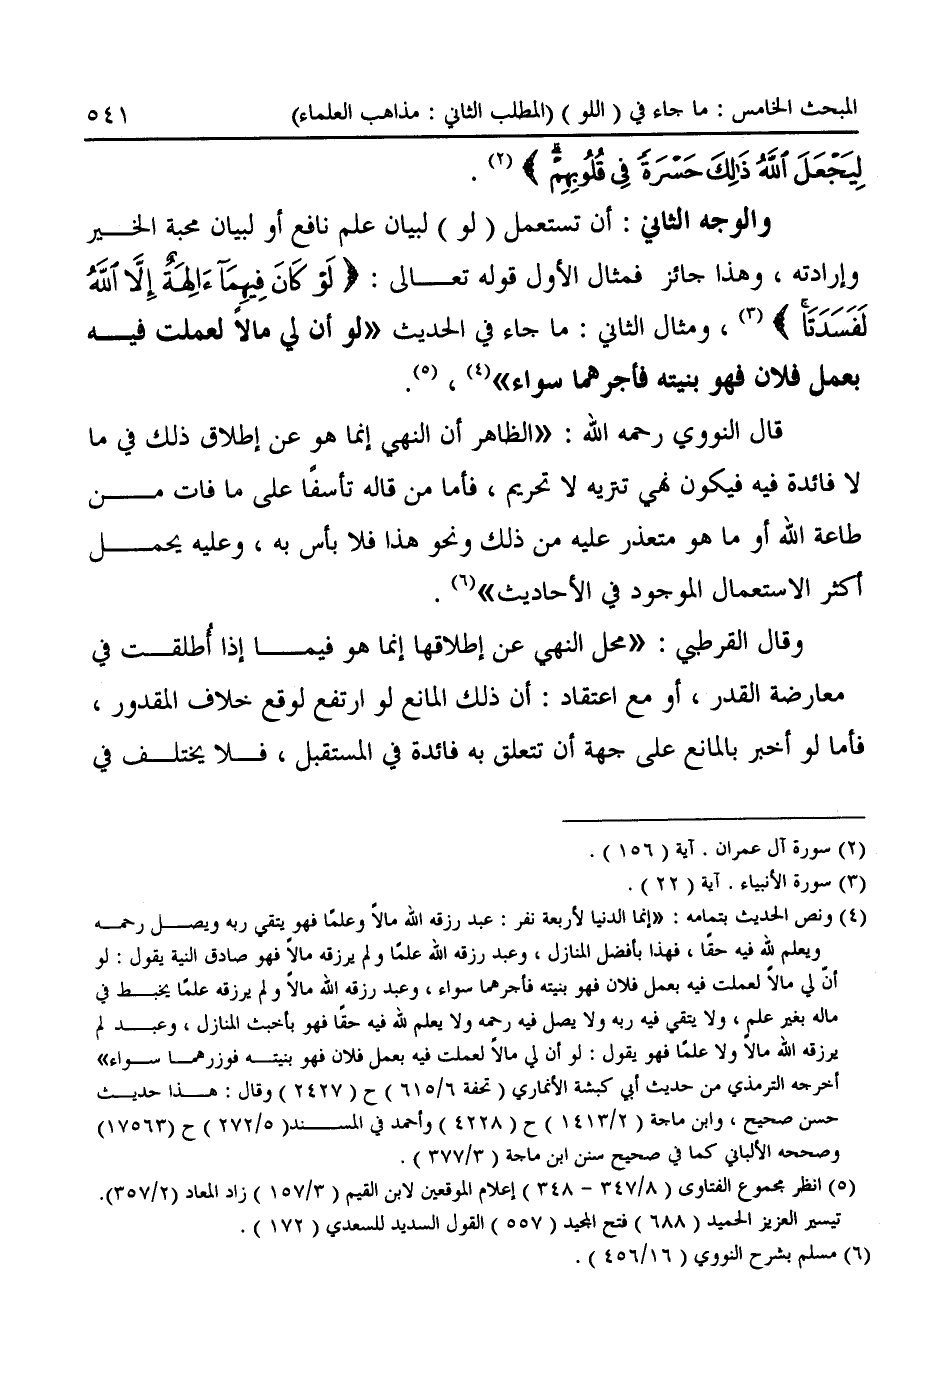 المبحث الخامس : ما جاء في ( اللو ) (المطلب الثاني : مذاهب العلماء) ٥٤١
لِيَجْعَلَ ٱللَّهُ ذَٰلِكَ حَسْرَةً فِى قُلُوبِهِمْ ﴾ (٢) .
والوجه الثاني : أن تستعمل ( لو ) لبيان علم نافع أو لبيان محبة الخير
وإرادته ، وهذا جائز فمثال الأول قوله تعالى : ﴿ لَوْ كَانَ فِيهِمَآ ءَالِهَةٌ إِلَّا ٱللَّهُ
لَفَسَدَتَا ﴾ (٣) ، ومثال الثاني : ما جاء في الحديث «لو أن لي مالاً لعملت فيه
بعمل فلان فهو بنيته فأجرهما سواء»(٤) ، (٥).
قال النووي رحمه الله : «الظاهر أن النهي إنما هو عن إطلاق ذلك في ما
لا فائدة فيه فيكون نهي تنزيه لا تحريم ، فأما من قاله تأسفًا على ما فات من
طاعة الله أو ما هو متعذر عليه من ذلك ونحو هذا فلا بأس به ، وعليه يحمل
أكثر الاستعمال الموجود في الأحاديث»(٦) .
وقال القرطبي : «محل النهي عن إطلاقها إنما هو فيما إذا أُطلقت في
معارضة القدر ، أو مع اعتقاد : أن ذلك المانع لو ارتفع لوقع خلاف المقدور ،
فأما لو أخبر بالمانع على جهة أن تتعلق به فائدة في المستقبل ، فلا يختلف في
(٢) سورة آل عمران . آية ( ١٥٦ ) .
(٣) سورة الأنبياء . آية ( ٢٢ ) .
(٤) ونص الحديث بتمامه : «إنما الدنيا لأربعة نفر : عبد رزقه الله مالاً وعلمًا فهو يتقي ربه ويصل رحمه
ويعلم لله فيه حقًا ، فهذا بأفضل المنازل ، وعبد رزقه الله علمًا ولم يرزقه مالاً فهو صادق النية يقول : لو
أنّ لي مالاً لعملت فيه بعمل فلان فهو بنيته فأجرهما سواء ، وعبد رزقه الله مالاً ولم يرزقه علمًا يخبط في
ماله بغير علم ، ولا يتقي فيه ربه ولا يصل فيه رحمه ولا يعلم لله فيه حقًا فهو بأخبث المنازل ، وعبد لم
يرزقه الله مالاً ولا علمًا فهو يقول : لو أن لي مالاً لعملت فيه بعمل فلان فهو بنيته فوزرهما سواء»
أخرجه الترمذي من حديث أبي كبشة الأنماري ( تحفة ٦١٥/٦ ) ح ( ٢٤٢٧ ) وقال : هذا حديث
حسن صحيح ، وابن ماجة ( ١٤١٣/٢ ) ح ( ٤٢٢٨ ) وأحمد في المسند( ٢٧٢/٥ ) ح (١٧٥٦٣)
وصححه الألباني كما في صحيح سنن ابن ماجة ( ٣٧٧/٣ ) .
(٥) انظر مجموع الفتاوى ( ٣٤٧/٨ – ٣٤٨ ) إعلام الموقعين لابن القيم ( ١٥٧/٣ ) زاد المعاد (٣٥٧/٢).
تيسير العزيز الحميد ( ٦٨٨ ) فتح المجيد ( ٥٥٧ ) القول السديد للسعدي ( ١٧٢ ) .
(٦) مسلم بشرح النووي ( ٤٥٦/١٦ ) .